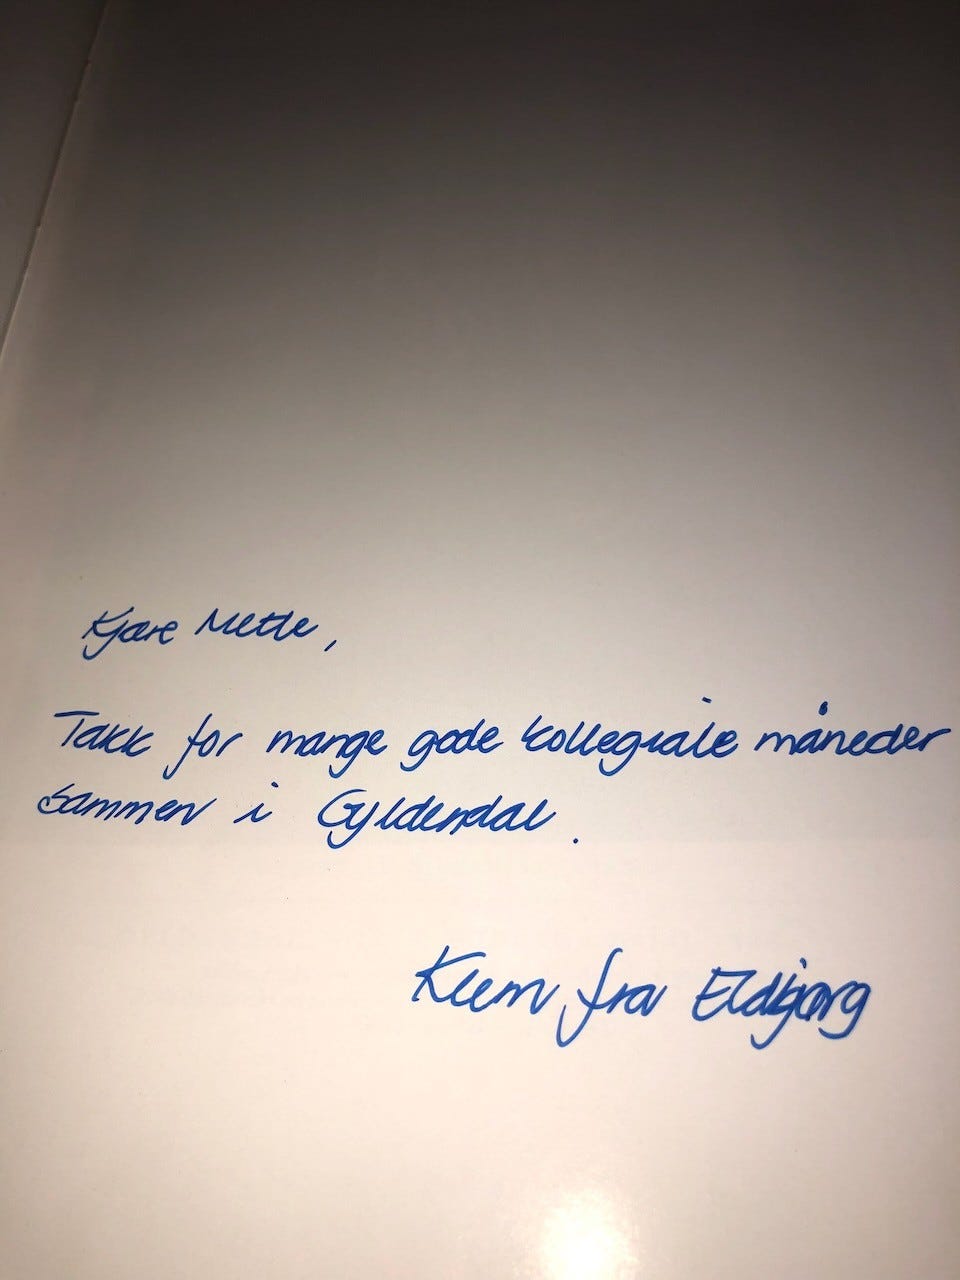 Kjære Mette,
Takk for mange gode kollegiale måneder
sammen i Gyldendal.
Klem fra Eldbjørg